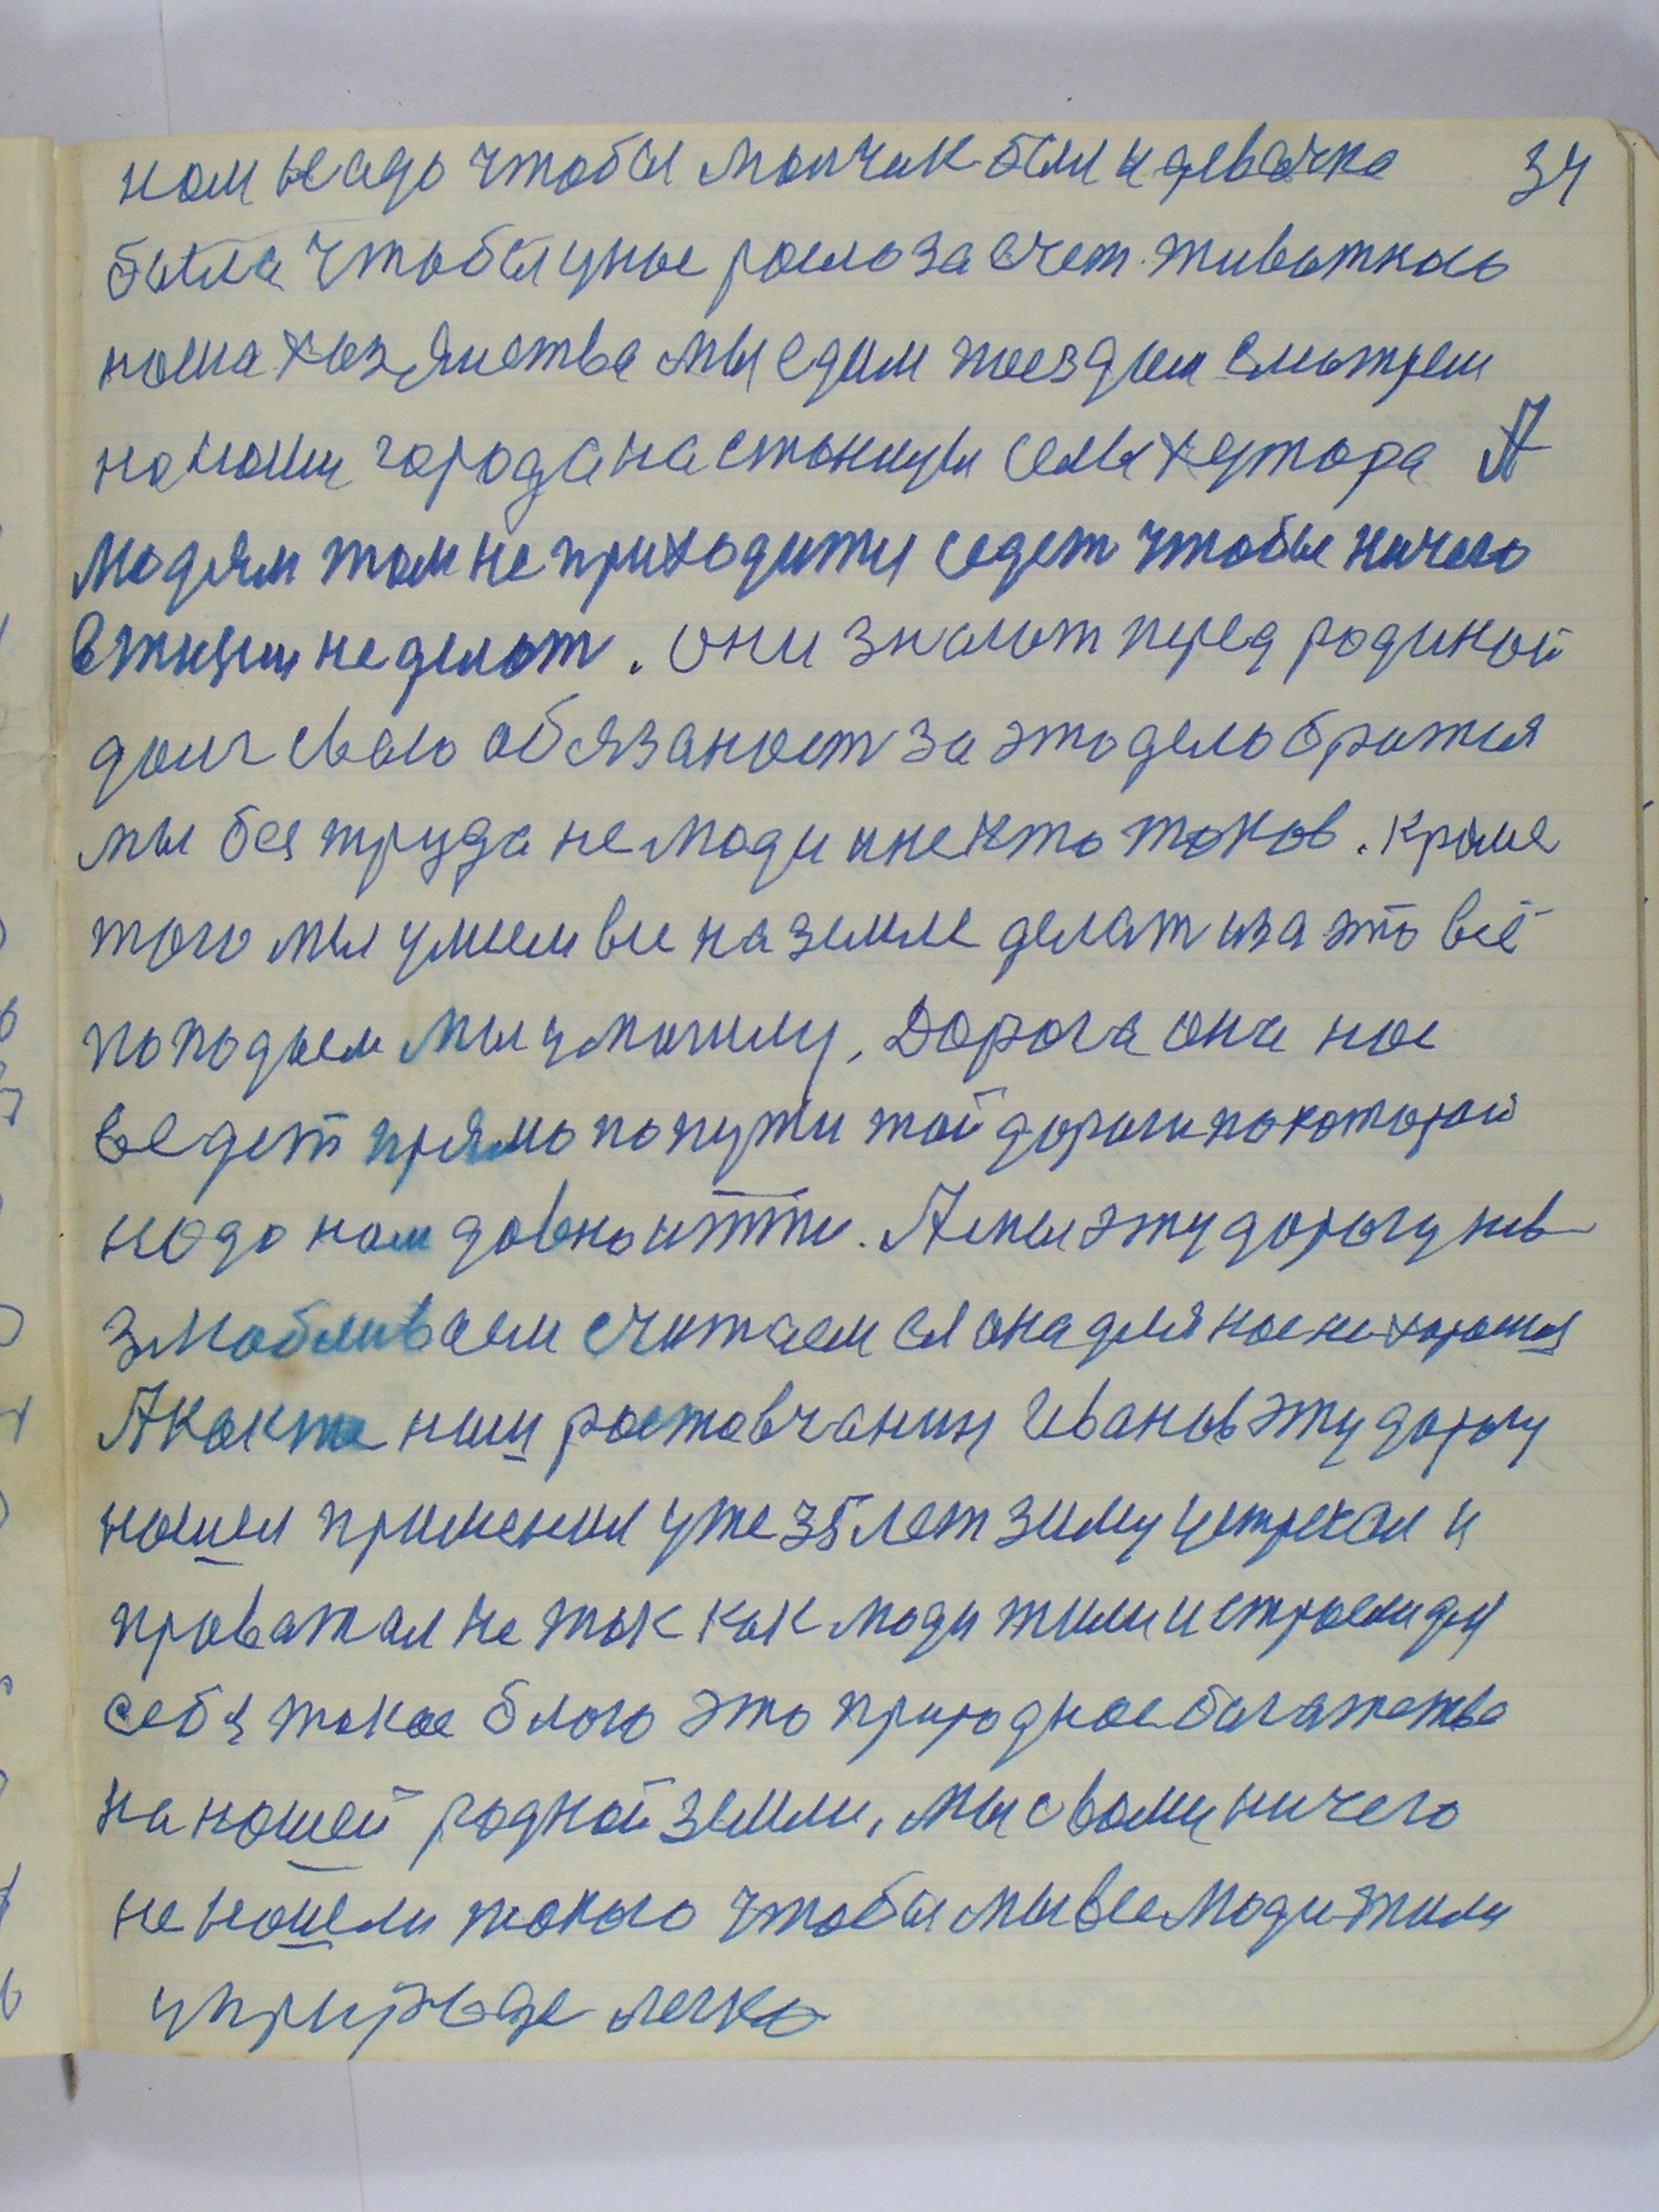 нам надо чтобы малчик был и девачка 34
была чтобы у нас росло за счет животнова
наша хозяиства мы едим поездом смотрем
на наши города на станицы сёлы хутора А
людям там не приходится седет чтобы ничего
в жизни не делат. они знают перед родиной
долг свою обязаност за это дело братся
мы без труда не люди и не кто таков. кроме
того мы умеем все на земле делат и за это всё
пападаем мы у могилу. Дорога она нас
ведет прямо по пути той дороги по каторой
надо нам давно итти. А мы эту дорогу нев
злюбливаем считаем ея она для нас не хорошея
А как же наш ростовчанин Иванов эту дорогу
нашел применил уже 35 лет зиму устречал и
проважал не так как люди жили и строели для
себя такое благо это природное багатства
на нашей родной земли, мы свами ничего
не нашели такого чтобы мы все люди жили
у природе легко